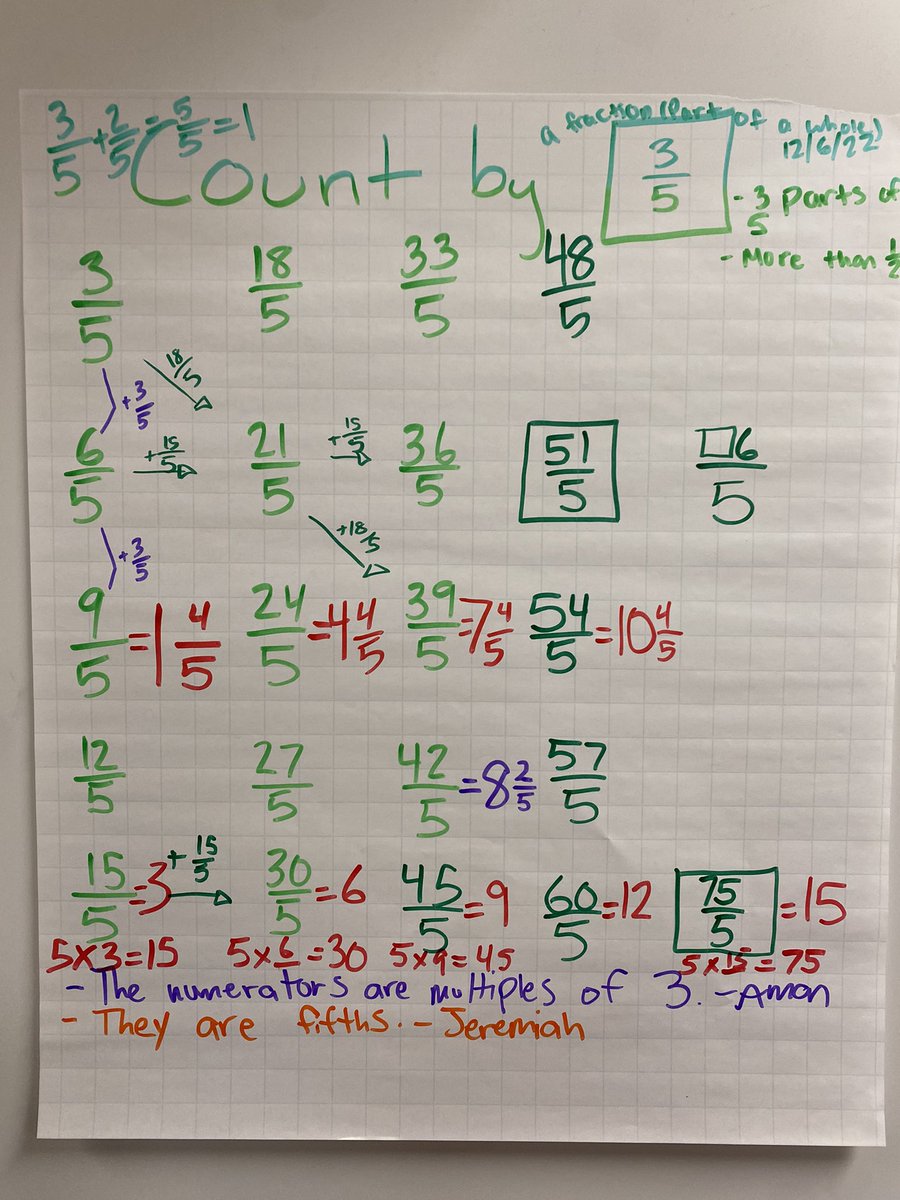 3/5 + 2/5 = 5/5 = 1
a fraction (Part of a whole)
12/6/22
Count by 3/5
- 3/5 parts of
- More than 1/2
3/5 18/5 33/5 48/5
+3/5 18/5
6/5 +15/5 21/5 +15/5 36/5 51/5 □6/5
+3/5 +18/5
9/5 = 1 4/5 24/5 = 4 4/5 39/5 = 7 4/5 54/5 = 10 4/5
12/5 27/5 42/5 = 8 2/5 57/5
15/5 = 3 +15/5 30/5 = 6 45/5 = 9 60/5 = 12 75/5 = 15
5×3=15 5×6=30 5×9=45 5×15=75
- The numerators are multiples of 3. - Aman
- They are fifths. - Jeremiah